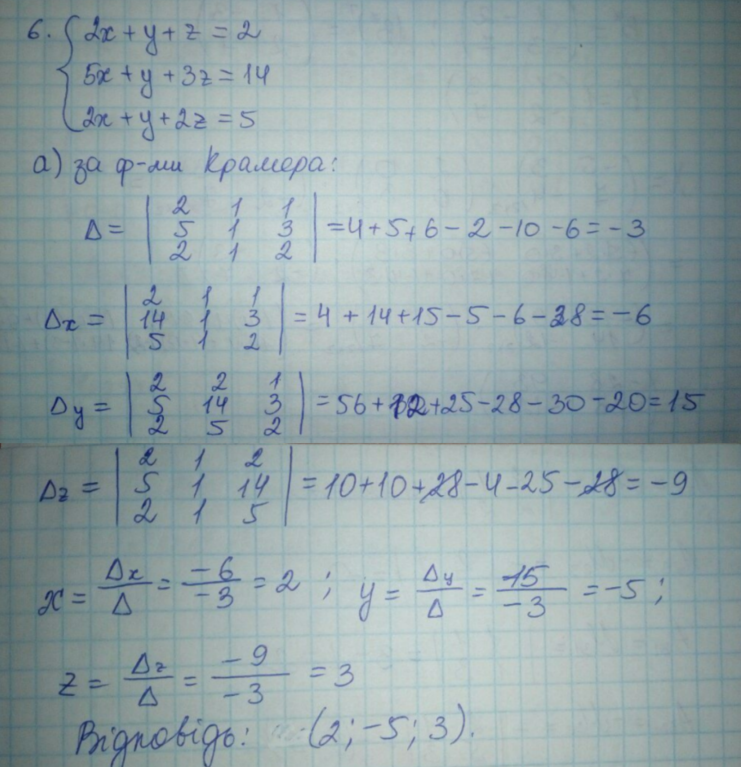 6. { 2x + y + z = 2
5x + y + 3z = 14
2x + y + 2z = 5
а) за ф-ми Крамера:
Δ = | 2 1 1 |
| 5 1 3 | = 4 + 5 + 6 - 2 - 10 - 6 = -3
| 2 1 2 |
Δx = | 2 1 1 |
| 14 1 3 | = 4 + 14 + 15 - 5 - 6 - 28 = -6
| 5 1 2 |
Δy = | 2 2 1 |
| 5 14 3 | = 56 + 12 + 25 - 28 - 30 - 20 = 15
| 2 5 2 |
Δz = | 2 1 2 |
| 5 1 14 | = 10 + 10 + 28 - 4 - 25 - 28 = -9
| 2 1 5 |
x = Δx/Δ = -6/-3 = 2 ; y = Δy/Δ = 15/-3 = -5 ;
z = Δz/Δ = -9/-3 = 3
Відповідь: (2 ; -5 ; 3).